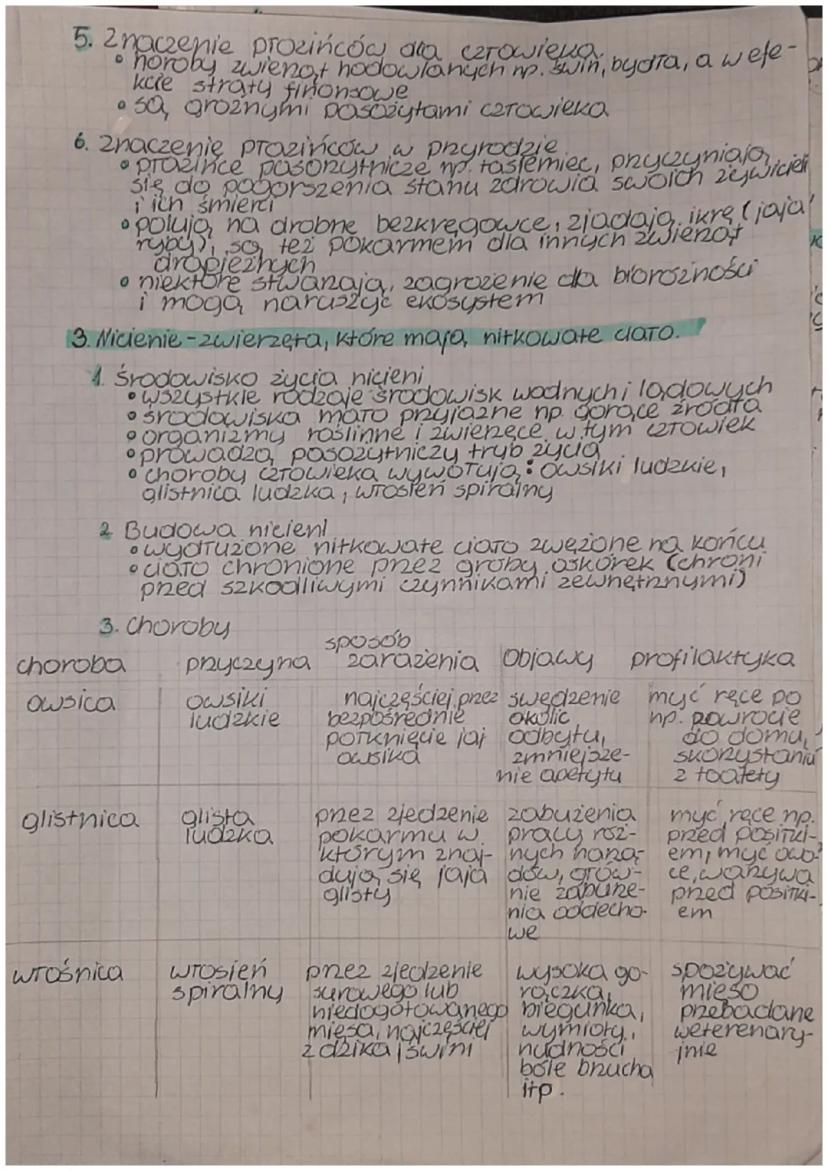 5. Znaczenie płazińców dla człowieka
• horoby zwierząt hodowlanych np. świn, bydła, a w efe-
kcie straty finansowe
• są groźnymi pasożytami człowieka
6. znaczenie płazińców w przyrodzie
• płazińce pasorzytnicze np. tasiemiec, przyczyniają
się do pogorszenia stanu zdrowia swoich żywicieli
i ich śmierci
• polują na drobne bezkręgowce, zjadają ikrę (jaja
ryby), są też pokarmem dla innych zwierząt
drapieżnych
• niektóre stwarzają zagrożenie dla bioróżności
i mogą naruszyć ekosystem
3. Nicienie - zwierzęta, które mają nitkowate ciało.
1. Środowisko życia nicieni
• wszystkie rodzaje środowisk wodnych i lądowych
• środowiska mało przyjazne np. gorące źródła
• organizmy roślinne i zwierzęce w tym człowiek
• prowadzą pasożytniczy tryb życia
• choroby człowieka wywołują: owsiki ludzkie,
glistnica ludzka, włosień spiralny
2. Budowa nicieni
• wydłużone nitkowate ciało zwężone na końcu
• ciało chronione przez gruby oskórek (chroni
przed szkodliwymi czynnikami zewnętrznymi)
3. Choroby
choroba przyczyna sposób zarażenia Objawy profilaktyka
owsica owsiki najczęściej przez swędzenie myć ręce po
ludzkie bezpośrednie okolic np. powrocie
połknięcie jaj odbytu, do domu,
owsika zmniejsze- skorzystaniu
nie apetytu z toalety
glistnica glista przez zjedzenie zabużenia myć ręce np.
ludzka pokarmu w pracy róż- przed posiłki-
którym znaj- nych narzą- em, myć owo-
dują się jaja dów, głów- ce, warzywa
glisty nie zabuże- przed posiłki-
nia oddecho- em
we
włośnica włosień przez zjedzenie wysoka go- spożywać
spiralny surowego lub rączka, mięso
niedogotowanego biegunka, przebadane
mięsa, najczęściej wymioty, weterenaryj-
z dzika i świni nudności jnie
bóle brzucha
itp.